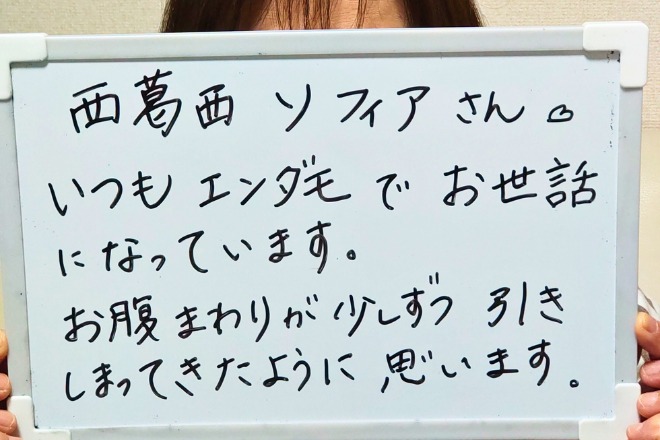 西葛西 ソフィア さん♡
いつも エンダモ で お世話
になっています。
お腹まわりが少しずつ 引き
しまってきたように 思います。